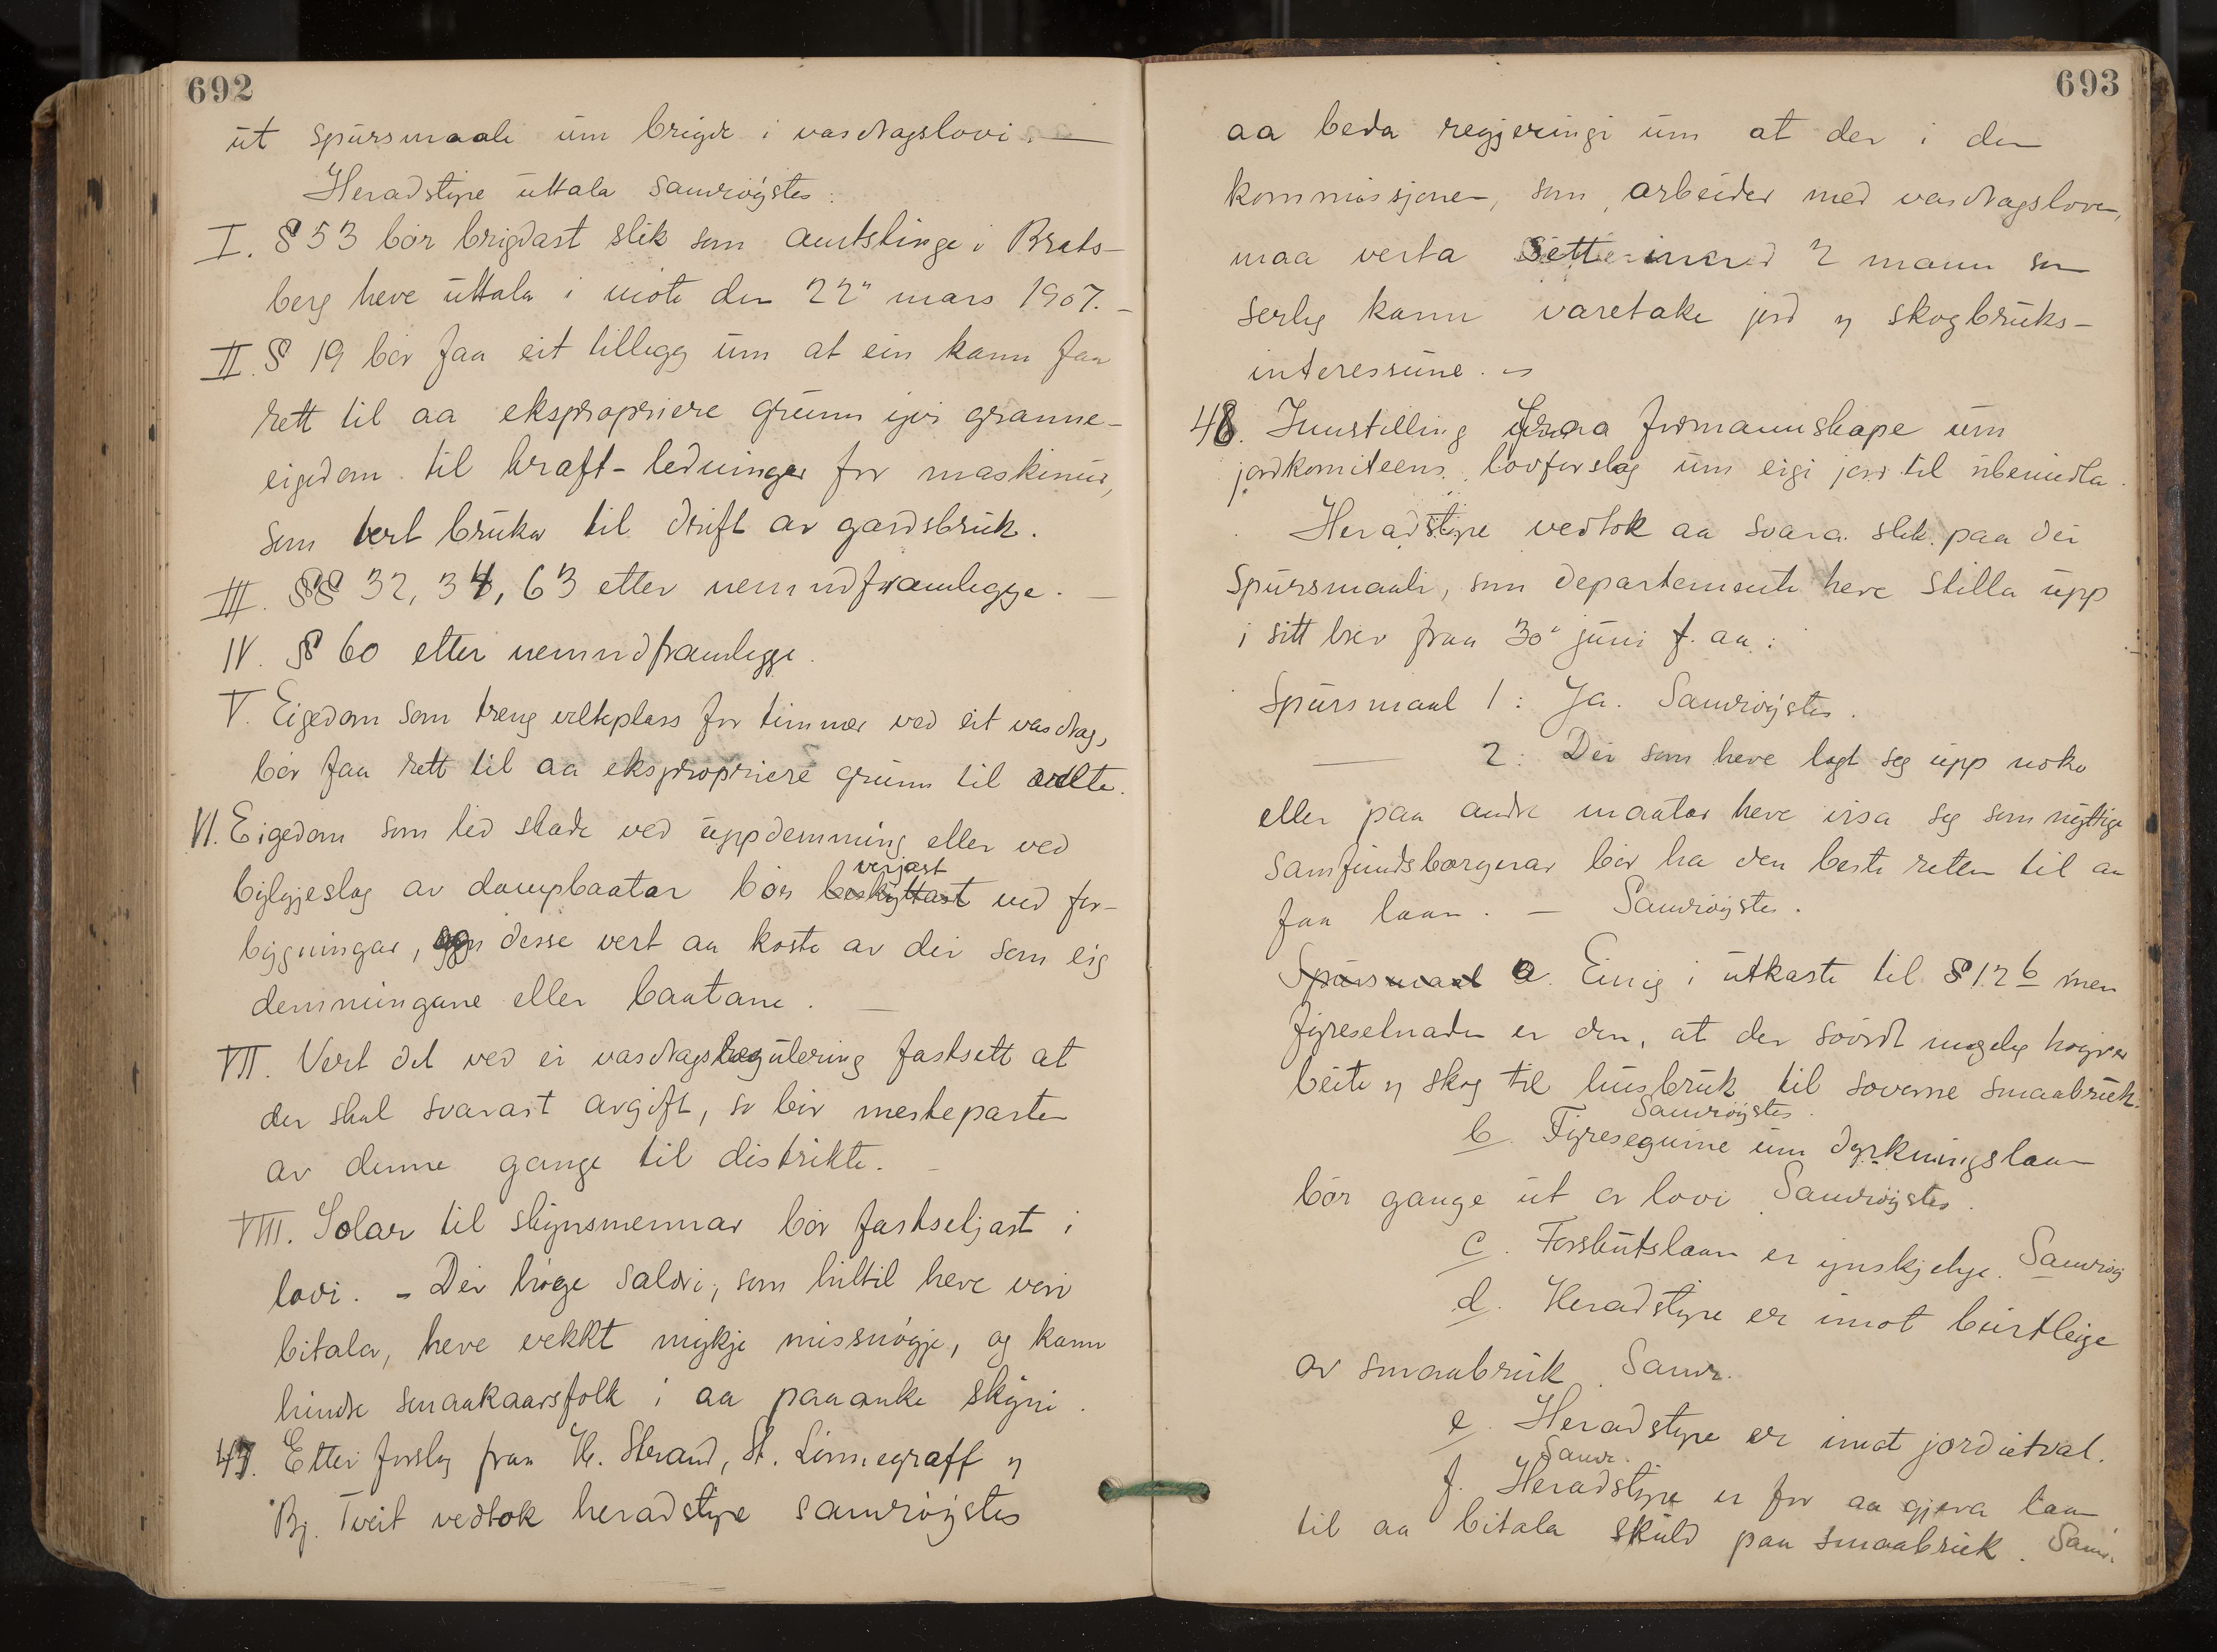 692
ut spursmaale um brigde i vasdragslovi. —
Heradstyre uttala samrøystes:
I. § 53 bør brigdast slik som amtstinge i Brats-
berg heve uttala i møte den 22" mars 1907. —
II. § 19 bør faa eit tillegg um at ein kann faa
rett til aa ekspropriere grunn yvi granne-
eigedom til kraft-ledninger for maskinur,
som vert bruka til drift av gardsbruk.
III. §§ 32, 34, 63 etter nemndframlegge. —
IV. § 60 etter nemndframlegge.
V. Eigedom som treng velteplass for timmer ved eit vasdrag,
bør faa rett til aa ekspropriere grunn til velte.
VI. Eigedom som lid skade ved uppdemming eller ved
verjast
bylgjeslag av dampbaatar bør beskyttast ved for-
bygningar, og desse vert aa koste av dei som eig
demningane eller baatane. —
VII. Vert det ved ei vasdragsregulering fastsett at
der skal svarast avgift, so bør mesteparten
av denne gange til distrikte. —
VIII. Solar til skynsmennar bør fastsetjast i
lovi. – Dei høge salari, som hiltil heve vori
bitala, heve vekkt mykje missnøgje, og kann
hindre smaakaarsfolk i aa paaanke skyni.
47. Etter forslag fraa H. Strand, St. Linnegraff og
Bj. Tveit vedtok heradstyre samrøystes
693
aa beda regjeringi um at der i den
kommissjonen, som arbeider med vasdragsloven,
maa verta sett inn 2 mann som
serleg kann varetake jord og skogbruks-
interessune. –
48. Innstilling fraa formannskape um
jordkomiteens lovforslag um eigi jord til ubemidla.
Heradstyre vedtok aa svara slik paa dei
spursmaali, som departemente heve stilla upp
i sitt brev fraa 30" juni f. aa:
Spursmaal 1: Ja. Samrøystes.
— 2: Dei som heve lagt seg upp noko
eller paa andre maatar heve visa seg som nyttige
samfundsborgerar bør ha den beste retten til aa
faa laan. — Samrøystes.
Spursmaal a. Einig i utkaste til § 12 b men
fyresetnaden er den, at der såvidt mogeleg høyrer
beite og skog til husbruk til sovorne smaabruk.
Samrøystes.
b. Fyresegnine um dyrkningslaan
bør gange ut or lovi. Samrøystes.
c. Forskutslaan er ynskjelege. Samrøy
d. Heradstyre er imot burtleige
av smaabruk. Samr.
e. Heradstyre er imot jordutval.
Samr.
f. Heradstyre er for aa gjeva laan
til aa bitala skuld paa smaabruk. Samr.